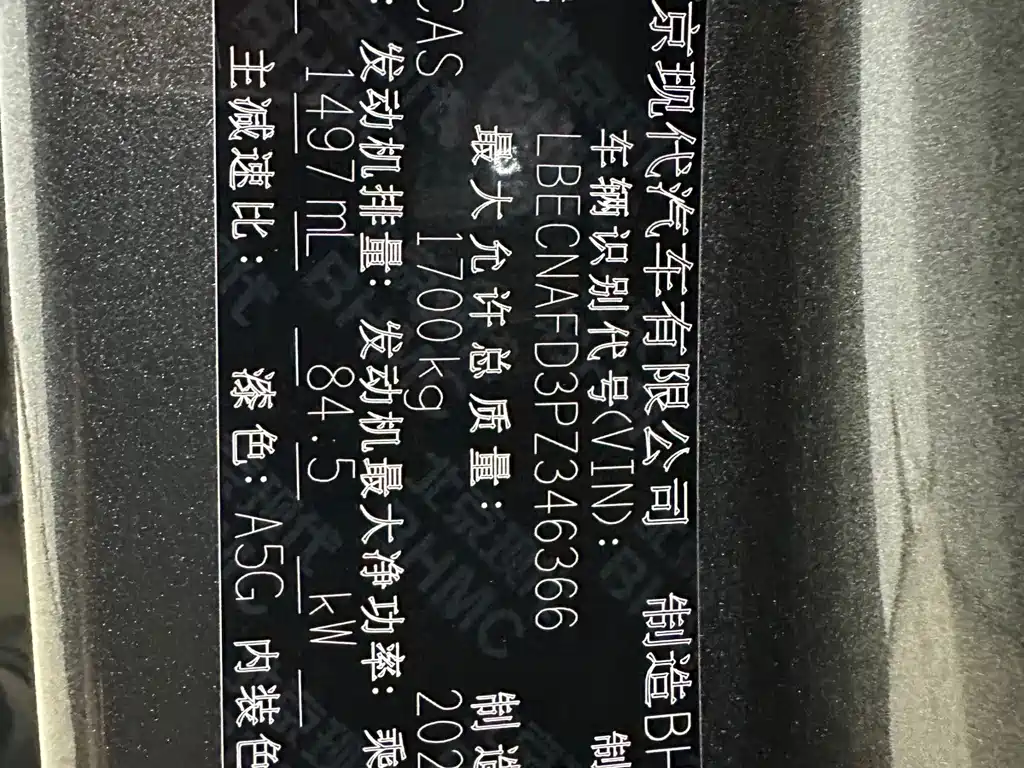 京现代汽车有限公司 制造BH
车辆识别代号(VIN): 制
LBECNAFD3PZ346366
最大允许总质量: 制造
CAS 1700kg 202
发动机排量: 发动机最大净功率: 乘
1497mL 84.5 kW
主减速比: 漆色:A5G 内装色